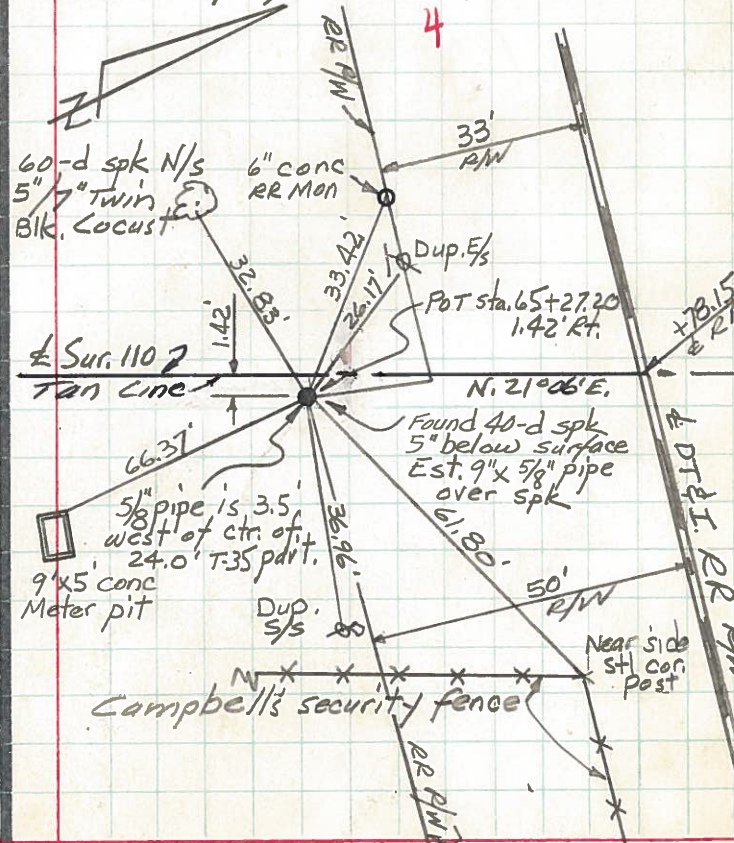 4
RR R/W
33'
R/W
60-d spk N/s
5"/7" Twin
Blk. Locust
6" conc
RR Mon
Dup. E/s
32.83'
33.42'
26.17'
1.42'
POT sta. 65+27.20
1.42' Rt.
+78.15
℄ Sur. 110
Tan Line
N. 21°06'E.
℄ DT&I. RR
66.37'
Found 40-d spk
5" below surface
Est. 9" x 5/8" pipe
over spk
5/8" pipe is 3.5'
west of ctr. of
24.0' T-35 pavt.
36.96'
61.80'
9'x5' conc
Meter pit
Dup.
S/s
50'
R/W
Near side
stl cor.
post
Campbell's security fence
RR R/W